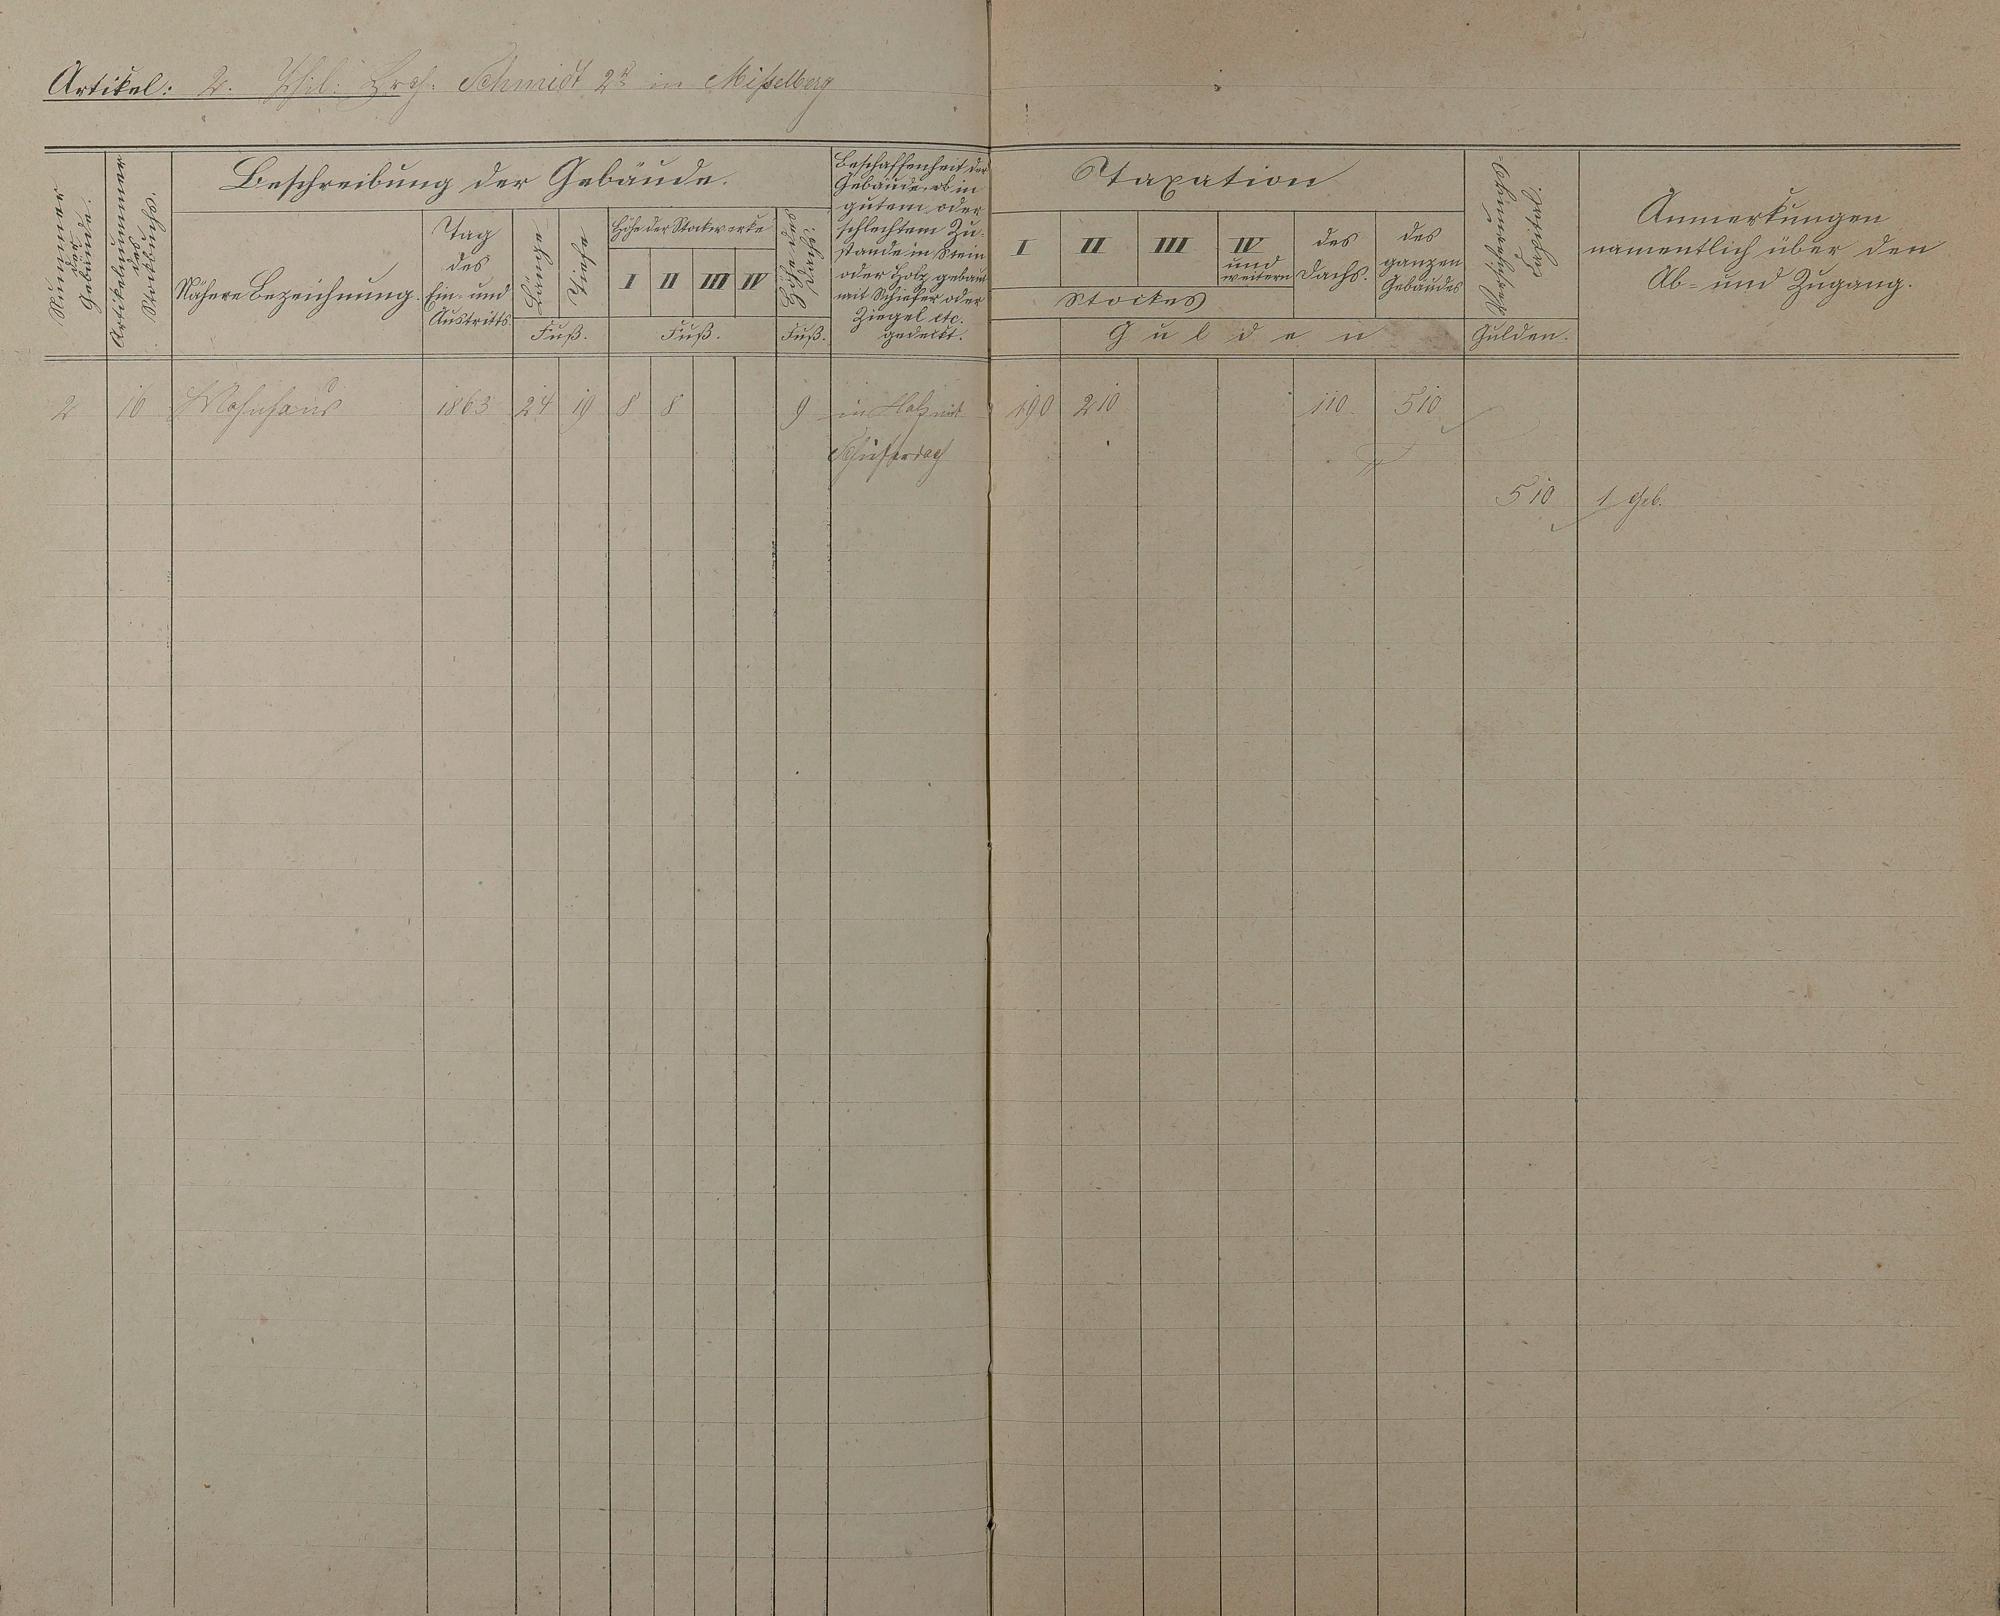 Artikel: 2. Phil: Hrch. Schmidt 2r in Mißelberg
Nummer der Gebäude.
Artikelnummer des Stockbuchs.
Beschreibung der Gebäude.
Nähere Bezeichnung.
Tag des Ein- und Austritts
Länge
Tiefe
Fuß.
Höhe der Stockwerke
I II III IV
Fuß.
Höhe des Dachs.
Fuß.
Beschaffenheit der
Gebäude, ob in
gutem oder
schlechtem Zu-
stande in Stein
oder Holz gebaut
mit Schiefer oder
Ziegel etc.
gedeckt.
Taxation
I II III IV und weitern
Stockes
des Dachs.
des ganzen Gebäudes
Gulden
Gulden.
Anmerkungen
namentlich über den
Ab- und Zugang.
2 16 Wohnhaus 1863 24 19 8 8 9 in Holz mit 190 210 110 510
Schieferdach
510 1 Geb.